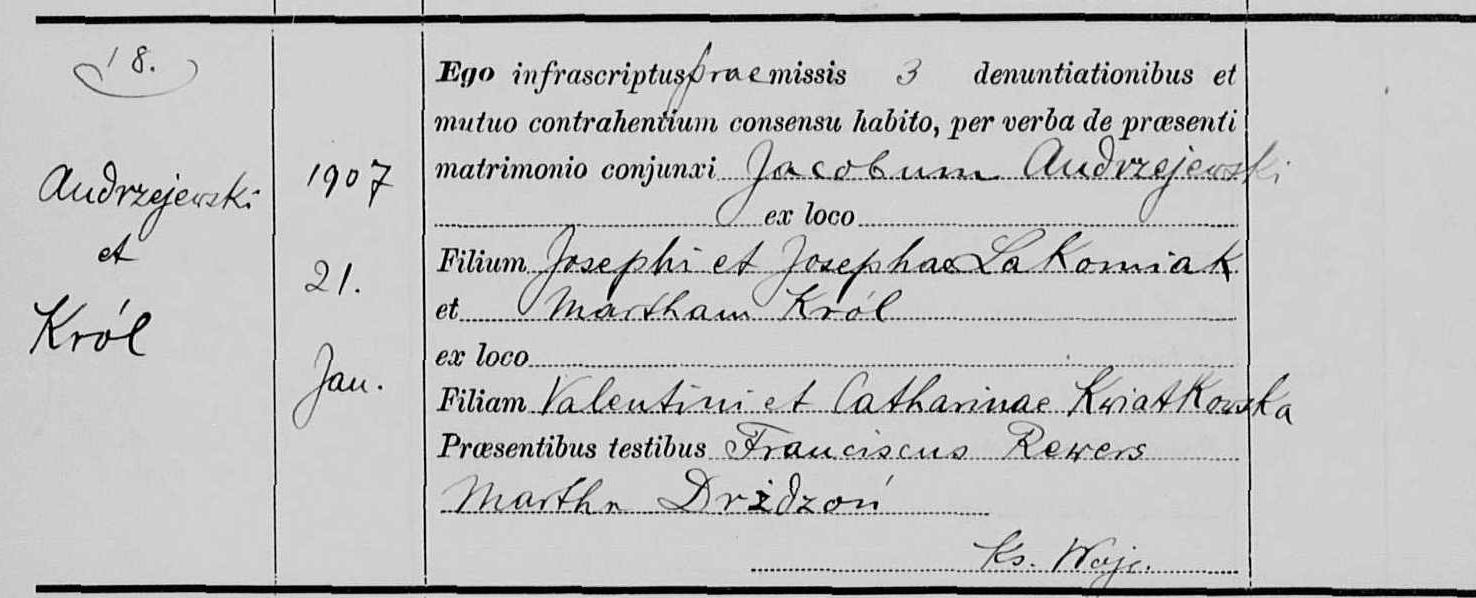 18.
Andrzejewski
et
Król
1907
21.
Jan.
Ego infrascriptus, praemissis 3 denuntiationibus et
mutuo contrahentium consensu habito, per verba de præsenti
matrimonio conjunxi Jacobum Andrzejewski
ex loco
Filium Josephi et Josephae Lakomiak
et Martham Król
ex loco
Filiam Valentini et Catharinae Kwiatkowska
Præsentibus testibus Franciscus Rewers
Martha Drżdzoń
Ks. Wojc.